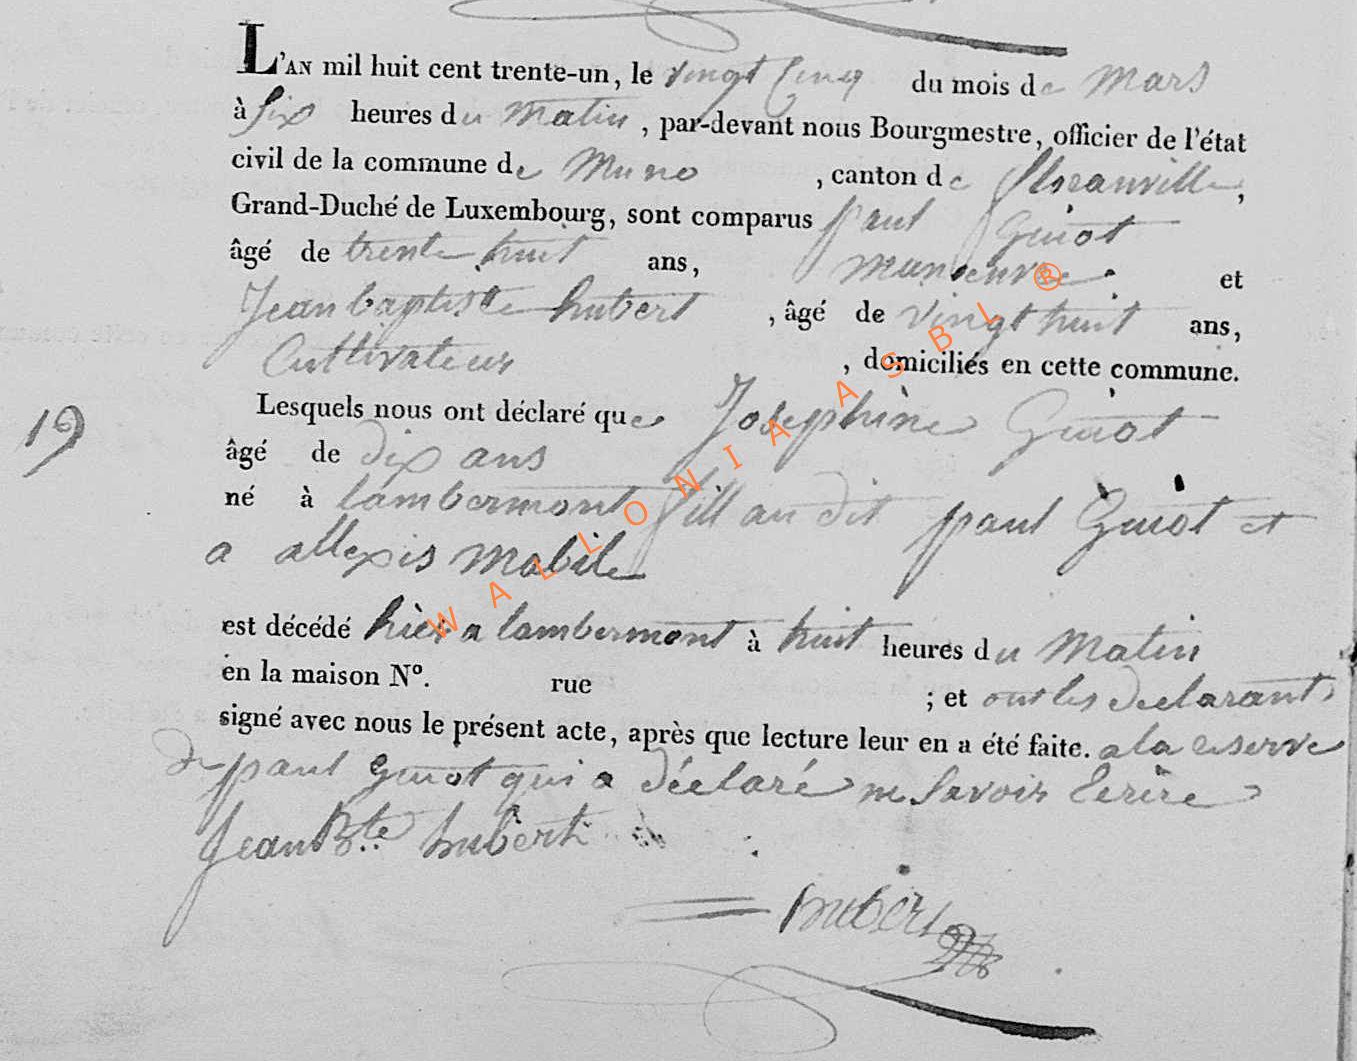 L'AN mil huit cent trente-un, le vingt cinq du mois de Mars
à six heures du Matin, par-devant nous Bourgmestre, officier de l'état
civil de la commune de Muno, canton de Florenville,
Grand-Duché de Luxembourg, sont comparus paul Guiot
âgé de trente huit ans, manoeuvre et
Jean baptiste hubert, âgé de vingt huit ans,
Cultivateur, domiciliés en cette commune.
Lesquels nous ont déclaré que Josephine Guiot
19
âgé de dix ans
né à lambermont fill au dit paul Guiot et
a allexis Mabile
est décédé hier a lambermont à huit heures du Matin
en la maison N°. rue ; et ont les declarants
signé avec nous le présent acte, après que lecture leur en a été faite. a la reserve
de paul Guiot qui a déclaré ne savoir Ecrire
Jean Bte hubert
hubert
WALLONIA ASBL ®